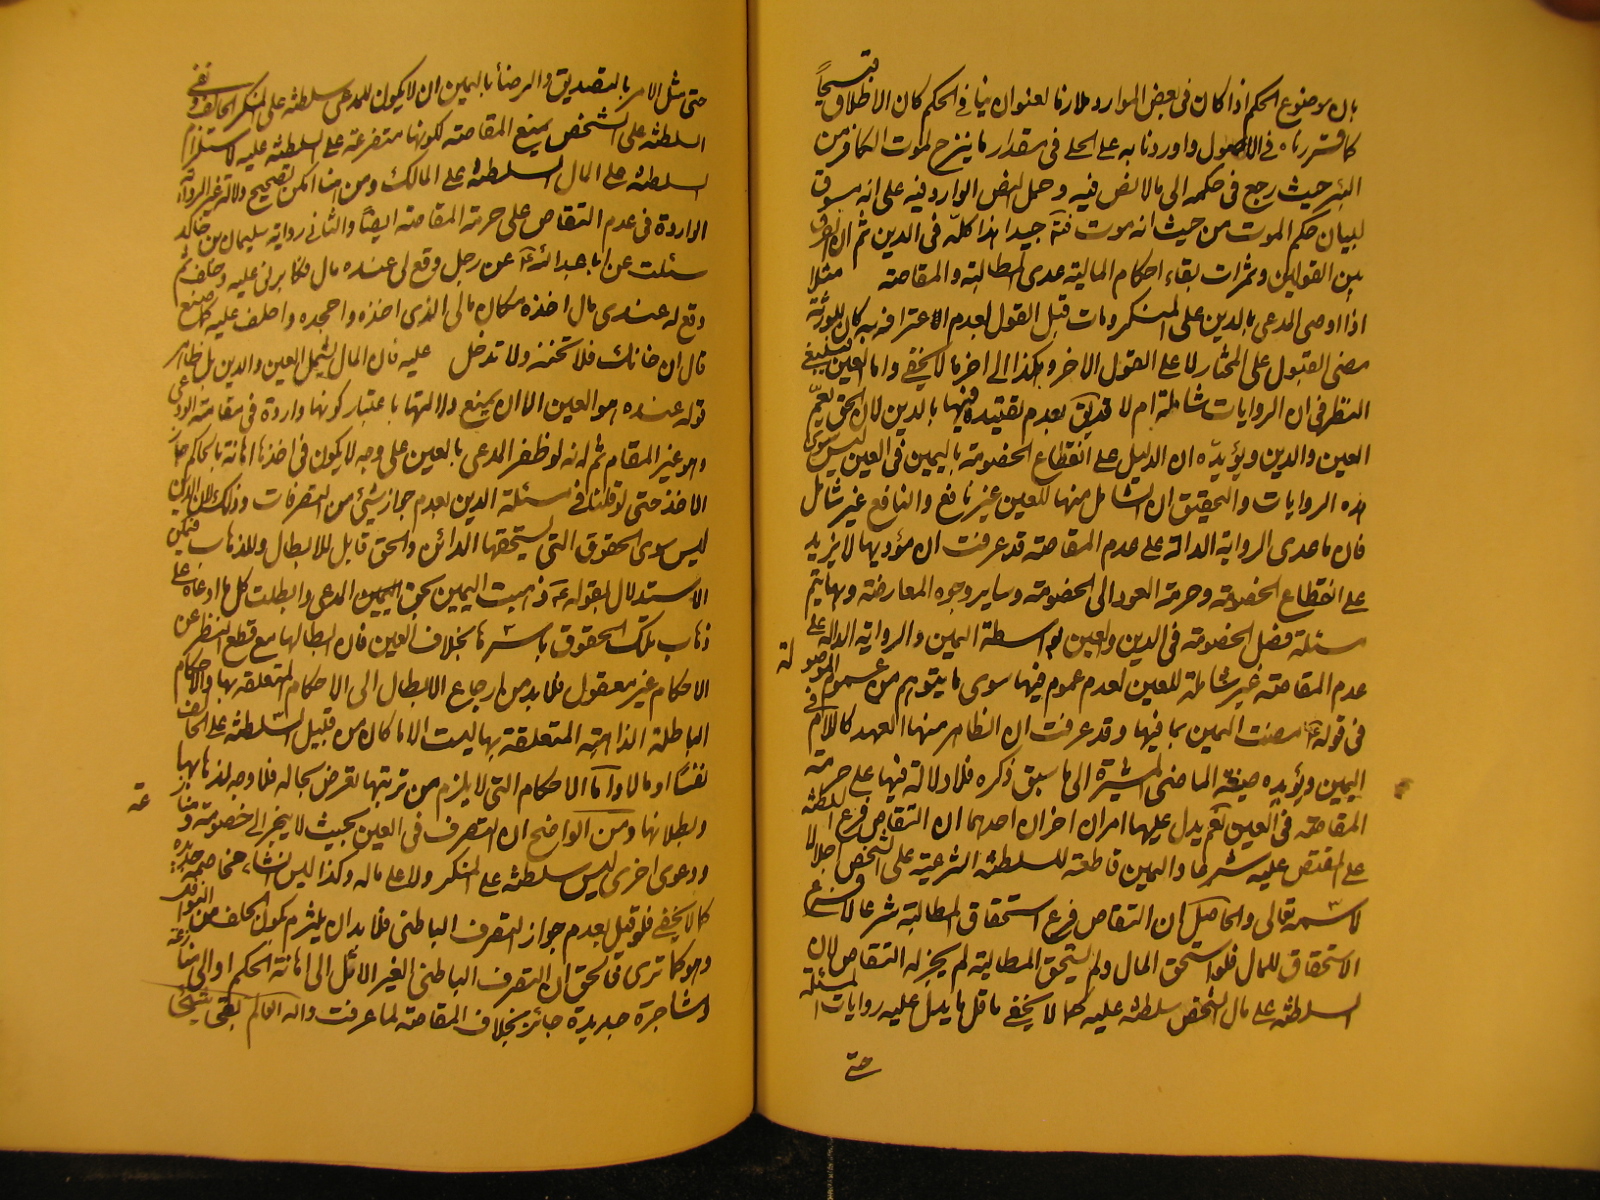 بان موضوع الحكم اذا كان فى بعض الموارد ملازما لعنوان ينافى الحكم كان الاطلاق قبيحاً
كما قررناه فى الاصول واوردنا به على الحلى فى مقدار ما ينزح لموت الكافر من
البئر حيث رجع فى حكمه الى ما لا نص فيه وحمل النص الوارد فيه على انه سوق
لبيان حكم الموت من حيث انه موت فتأمل جيدا هذا كله فى الدين ثم ان الفرق
بين القولين وثمرات بقاء احكام المالية عدى المطالبة والمقاصة مثلا
اذا اوصى المدعى بالدين على المنكر ومات قبل القول لعدم الاعتراف به كان للورثة
مضى القبول على المختار لا على القول الاخر وهكذا الى اخر ما لا يخفى واما العين فينبغى
النظر فى ان الروايات شاملة ام لا قد يق بعدم تقييده فيها بالدين لان الحق يعم
العين والدين ويؤيده ان الدليل على انقطاع الخصومة باليمين فى العين ليس سوى
هذه الروايات والتحقيق ان الشامل منها للعين غير نافع والنافع غير شامل
فان ما عدى الرواية الدالة على عدم المقاصة قد عرفت ان مؤديها لا يزيد
على انقطاع الخصومة وحرمة العود الى الخصومة وساير وجوه المعارضة وبها يتم
مسئلة فصل الخصومة فى الدين والعين بواسطة اليمين والرواية الدالة على
عدم المقاصة غير شاملة للعين لعدم عموم فيها سوى ما يتوهم من عموم الموصولة
فى قوله ع مضت اليمين بما فيها وقد عرفت ان الظاهر منها العهد كاللام فى
اليمين ويؤيده صيغة الماضى المشيرة الى ما سبق ذكره فلا دلالة فيها على حرمة
المقاصة فى العين نعم يدل عليها امران اخران احدهما ان التقاص فرع السلطنة
على المقتص عليه شرعا واليمين قاطعة للسلطنة الشرعية على الشخص اجلالا
لاسمه تعالى والحاصل ان التقاص فرع استحقاق المطالبة شرعا لا فرع
الاستحقاق للمال فلو استحق المال ولم يستحق المطالبة لم يجز له التقاص لان
السلطنة على مال الشخص سلطنة عليه كما لا يخفى ما قل ما يدل عليه روايات المسئلة
حتى
حتى مثل الامر بالتصديق والرضا باليمين ان لا يكون للمدعى سلطنة على المنكر الحالف ونفى
السلطنة على الشخص يمنع المقاصة لكونها متفرعة على السلطنة عليه لاستلزام
السلطنة على المال السلطنة على المالك ومن هنا امكن تصحيح دلالة غير الرواية
الواردة فى عدم التقاص على حرمة المقاصة ايضاً والثانى رواية سليمان بن خالد
سئلت عن ابا عبد الله ع عن رجل وقع لى عنده مال فكابرنى عليه وحلف ثم
وقع له عندى مال اخذه مكان مالى الذى اخذه واجحده واحلف عليه كما صنع
قال ان خانك فلا تخنه ولا تدخل عليه فان المال يشمل العين والدين بل ظاهر
قوله عنده هو العين الا ان يمنع دلالتها باعتبار كونها واردة فى مقاصة الودعى
وهو غير المقام ثم انه لو ظفر المدعى بالعين على وجه لا يكون فى اخذها اهانة بالحاكم جاز
الاخذ حتى لو قلنا فى مسئلة الدين بعدم جواز شيئ من التصرفات وذلك لان الدين
ليس سوى الحقوق التى يستحقها الدائن والحق قابل للابطال وللذهاب فيمكن
الاستدلال بقوله ع ذهبت اليمين بحق المدعى وابطلت كل ما ادعاه على
ذهاب تلك الحقوق باسرها بخلاف العين فان ابطالها مع قطع النظر عن
الاحكام غير معقول فلا بد من ارجاع الابطال الى الاحكام المتعلقة بها والاحكام
الباطلة الذاهبة المتعلقة بها ليست الا ما كان من قبيل السلطنة على الحالف
نفسًا او مالا واما الاحكام التى لا يلزم من ترتبها تعرض بحاله فلا وجه لذهابها
وبطلانها ومن الواضح ان التصرف فى العين بحيث لا ينجر الى خصومة ومنازعة
ودعوى اخرى ليس سلطنة على المنكر ولا على ماله وكذا ليس انشاء مخاصمة جديدة
كما لا يخفى فلو قيل بعدم جواز التصرف الباطنى فلا بد ان يلتزم كون الحلف من النواقل
وهو كما ترى فالحق ان التصرف الباطنى الغير الائل الى اهانة الحكم او الى منازعة
ومشاجرة جديدة جائز بخلاف المقاصة لما عرفت والله العالم بقى شيئ